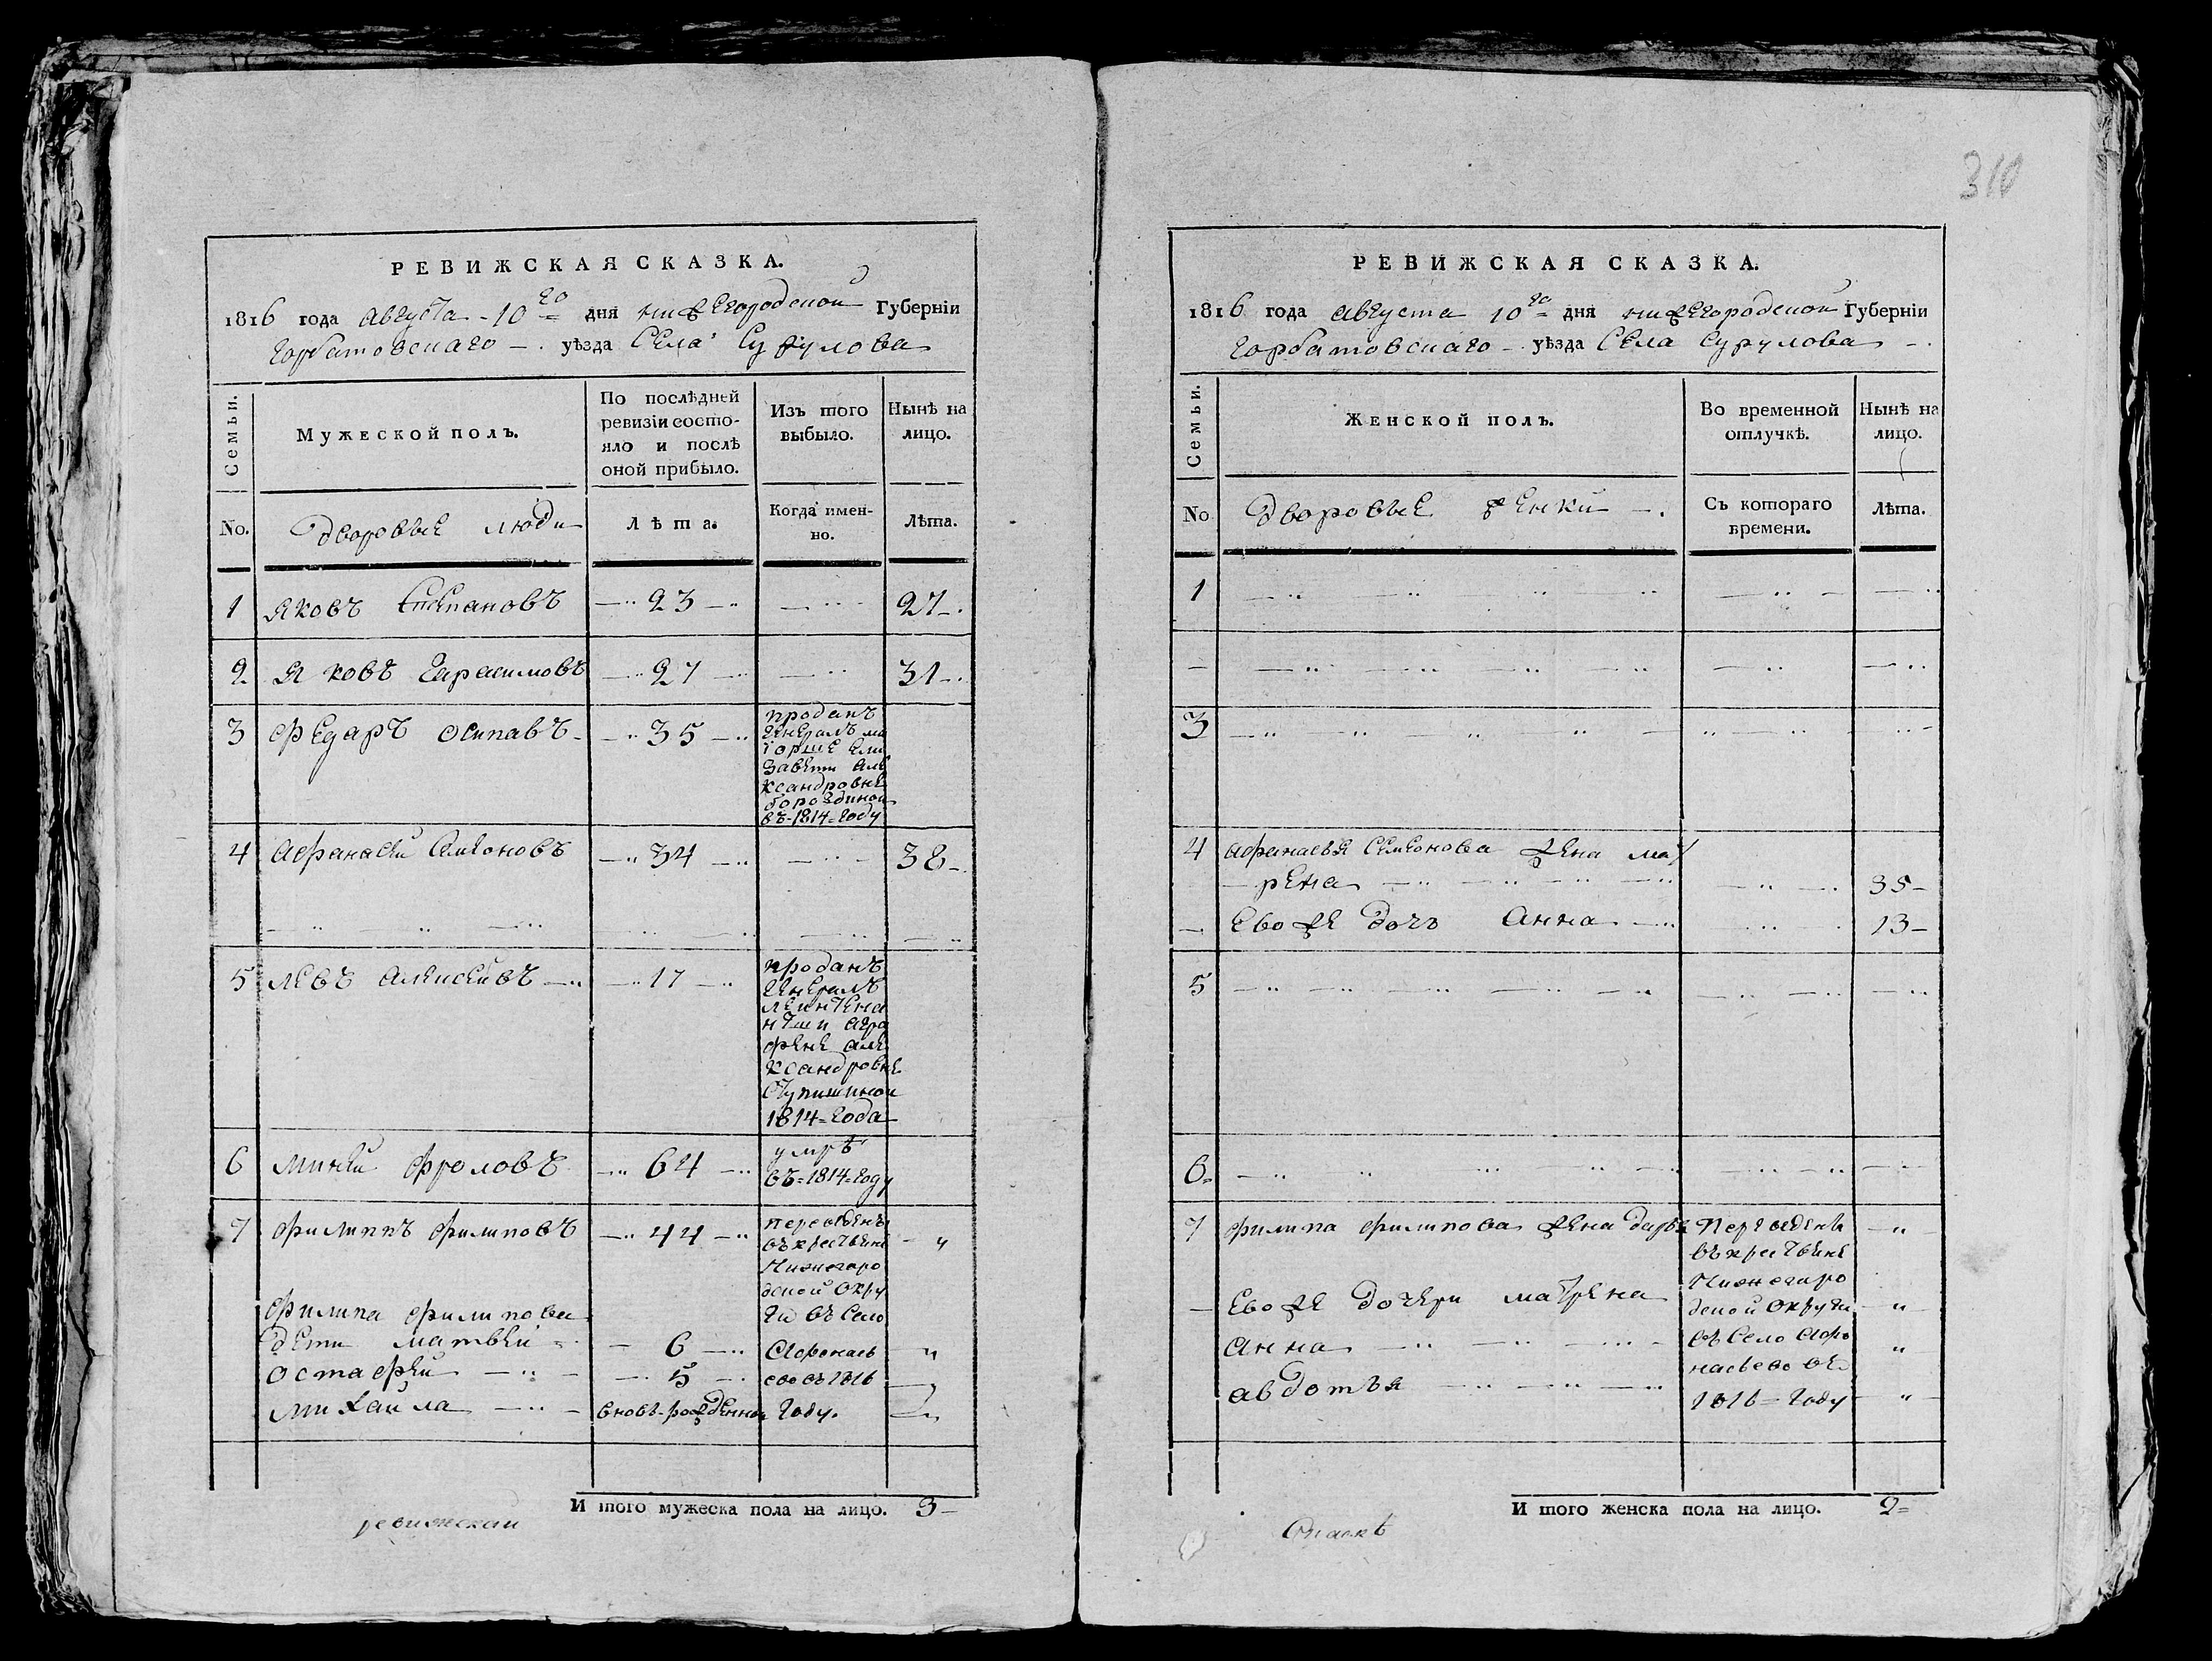 РЕВИЖСКАЯ СКАЗКА.
1816 года августа - 10го дня нижегородской Губерніи
горбатовскаго - . уѣзда Села Сурулова
Семьи.
Мужеской полъ.
По послѣдней
ревизіи состо-
яло и послѣ
оной прибыло.
Изъ того
выбыло.
Нынѣ на
лицо.
No.
дворовые люди
Лѣта.
Когда имен-
но.
Лѣта.
1 яковъ Степановъ 23 27
2 яковъ Герасимовъ 27 31
3 федаръ осипавъ 35
проданъ
генералъ ма
іорше ели
завети але
ксандровне
бороздиной
въ-1814=году
4 афанасей Семионовъ 34 38
5 левъ алексеивъ 17
проданъ
генералъ
леинтена
нтши агра
фене але
ксандровне
Ступишиной
1814=года
6 миней фроловъ 64
умре
въ=1814=году
7 филиппъ филиповъ 44
переведены
въ крестьяне
Нижегаро
дской окру
ги въ село
Афонась
ево въ 1816
году.
филипа филипова
дети матвей 6
остафей 5
михаила вновь-рожденной
И того мужеска пола на лицо. 3
ревижскаи
310
РЕВИЖСКАЯ СКАЗКА.
1816 года августа 10го дня нижегородской Губерніи
горбатовскаго - . уѣзда Села Сурулова
Семьи.
Женской полъ.
Во временной
отлучкѣ.
Нынѣ на
лицо.
No
дворовые женки
Съ котораго
времени.
Лѣта.
1
3
4 афанасья Семионова жена мат
рена 35
Евоже дочь Анна 13
5
6
7 филипа филипова жена дарье
Евоже дочери матрена
анна
авдотья
Переведены
въ крестьяне
Нижегаро
дской округи
въ село Афо
насьево въ
1816=году
И того женска пола на лицо. 2
Скаскѣ